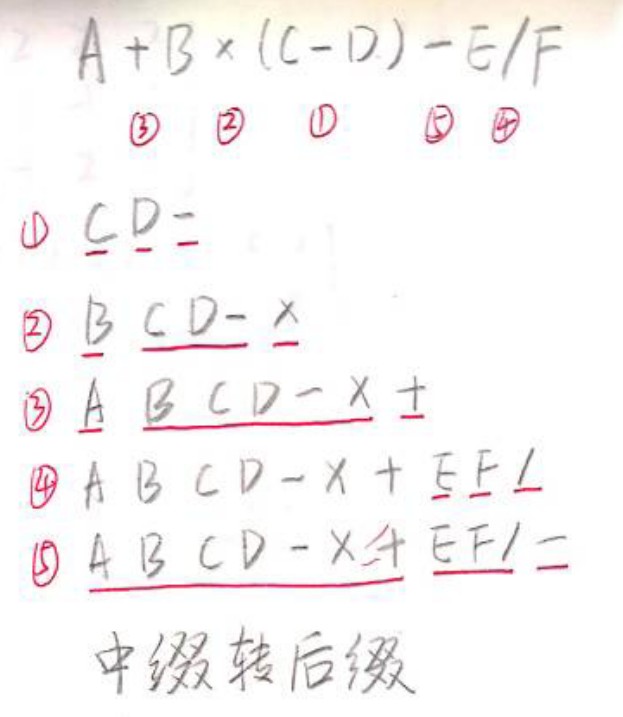 A+B×(C-D)-E/F
③ ② ① ⑤ ④
① C D -
② B C D - ×
③ A B C D - × +
④ A B C D - × + E F /
⑤ A B C D - × + E F / -
中缀转后缀